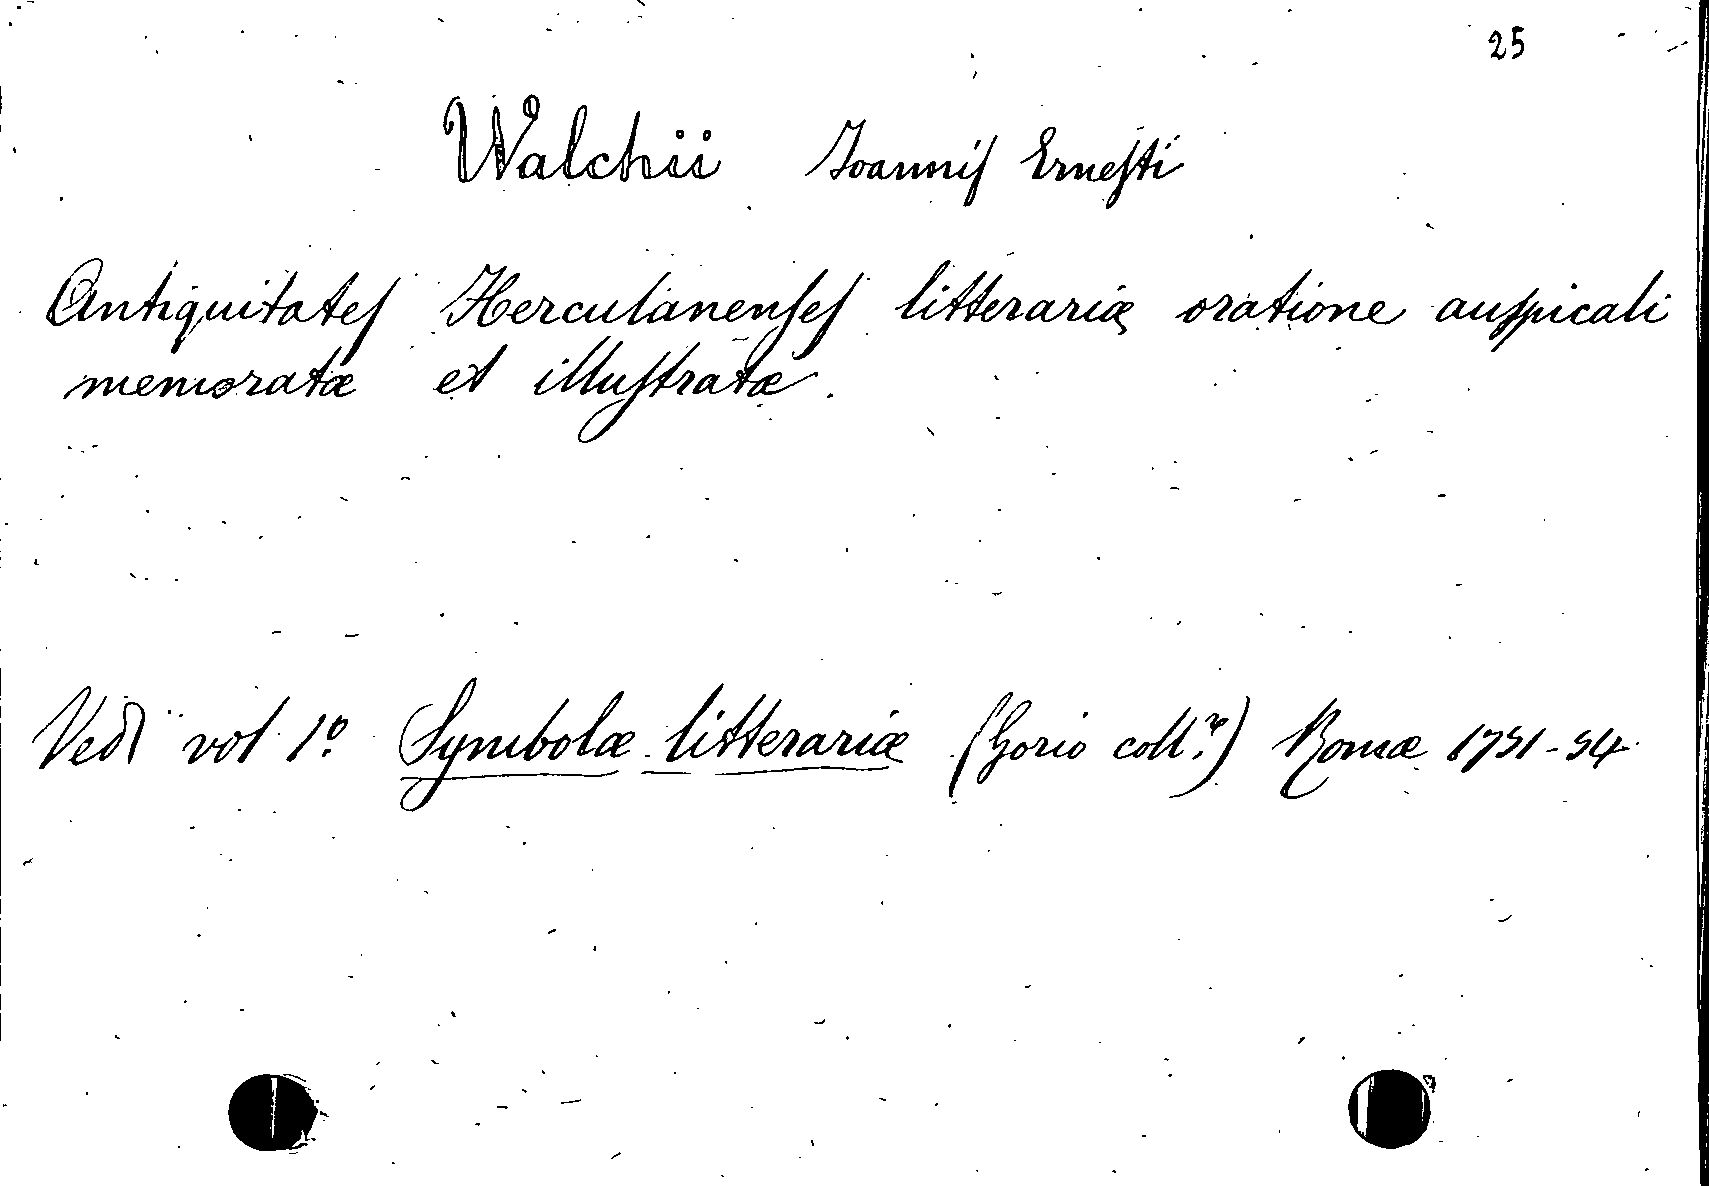 25
Walchii Ioannis Ernesti
Antiquitates Herculanenses litterariæ oratione auspicali
memoratæ et illustratæ.
Vedi vol 1º Symbolæ litterariæ (Gorio coll.r) Romæ 1751-54